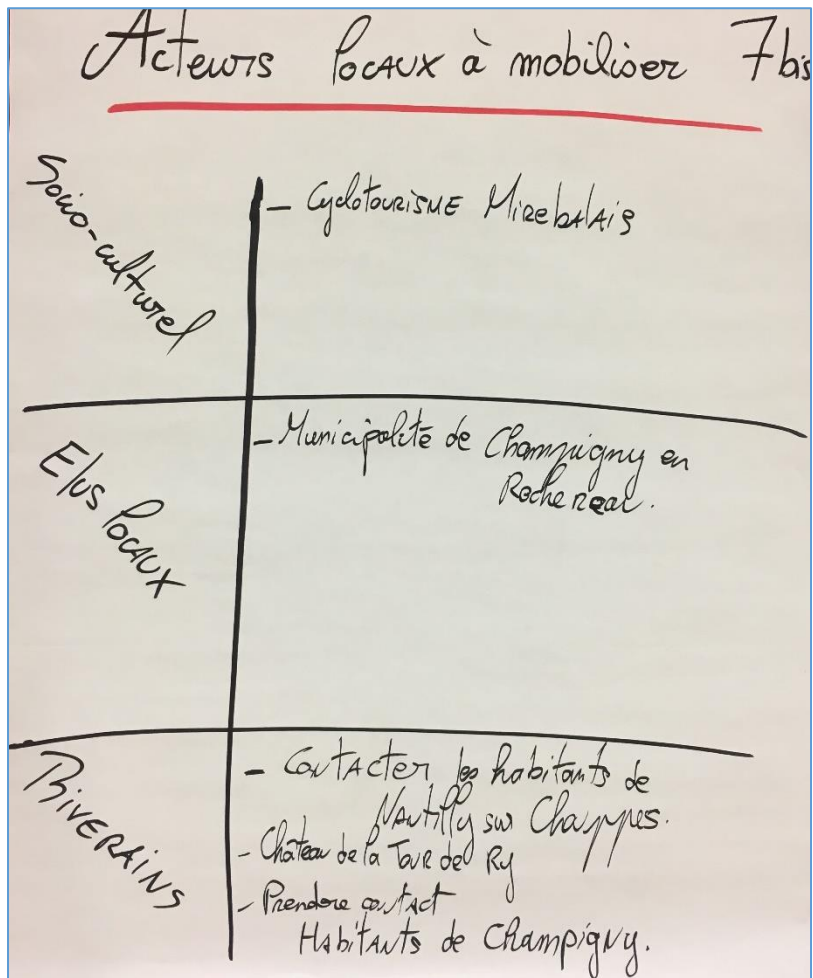 Acteurs locaux à mobiliser 7 bis
Socio-culturel
- Cyclotourisme Mirebalais
Elus locaux
- Municipalité de Champigny en
Rochereau.
Riverains
- Contacter les habitants de
sur Chayppes.
- Château de la Tour de Ry
- Prendre contact
Habitants de Champigny.